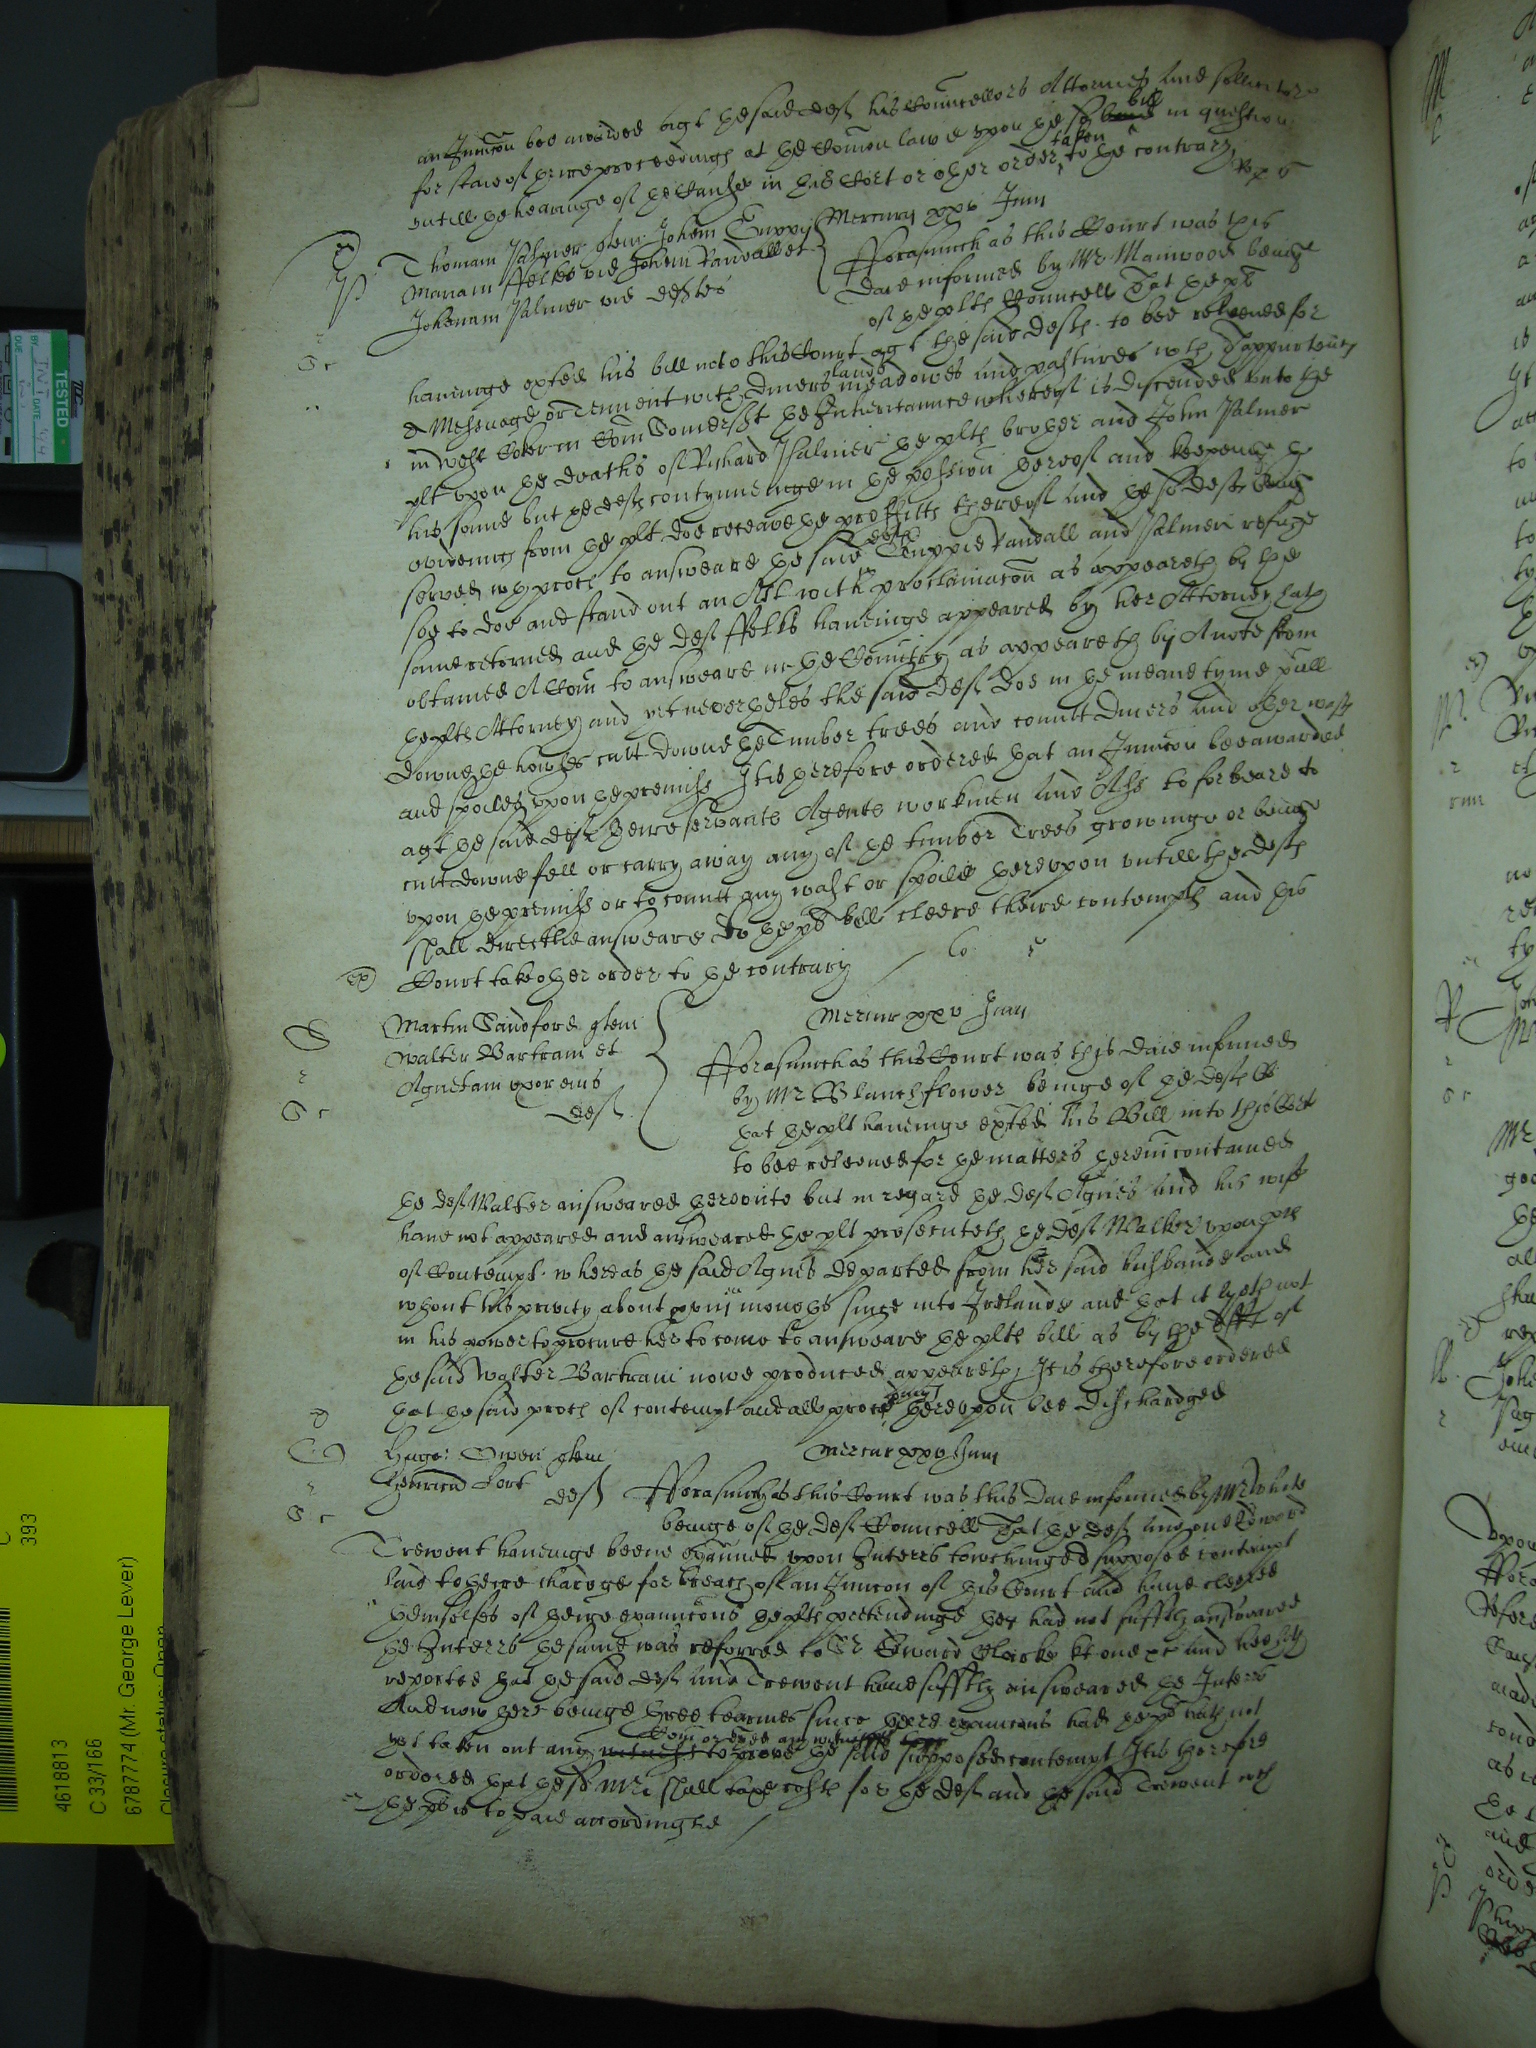 an Iniuncon bee awarded agt the said deft his Councellors Attornies and sollicitors
for staie of theire proceedings at the Comon lawe upon the sd bond bill in question
untill the hearinge of the Cause in this Cort or other order taken to the contrary
Thomam Palmer quer Johem Tuppy
Mariam ffelks vid Johem Randall et
Johannam Palmer vid deftes
Mercurij xxv Junij
Forasmuch as this Court was this
daie informed by Mr Mainwood being
of the plts Councell That the plt
haveinge exhted his bill into this Court agt the said defts to bee releeved for
a Messuage or Tenement with divers lands meadowes and pastures wth Thappurtennces
in West Coker in Com Somerset the Inheritannce whereof is discended unto the
plt upon the deaths of Richard Palmer the plts brother and John Palmer
his sonne but the defts contynueinge in the possession thereof and keepeing the
evidences from the plt doe receave the proffitts thereof and the sd defts being
served wth proces to answeare the said defts Tuppie Randall and Palmer refuse
soe to doe and stand out an Att with proclamacon as appeareth by the
same retorned and the deft ffelks haveinge appeared by her Attorney hath
obtained A Comn to answeare in the Countrey as appeareth by A note from
the plts Attorney and yet neverthelesse the said defts doe in the meane tyme pull
downe the howses cutt downe the Timber trees and comitt divers and other wasts
and spoiles upon the premisses It is therefore ordered that an Iniuncon bee awarded
agt the said defts theire servants Agents workmen and Asss to forbeare to
cutt downe fell or carry away any of the timber Trees growinge or being
upon the premisses or to comitt any wast or spoile thereupon untill the defts
shall directlie answeare to the plts bill cleere theire contempts and this
Court take other order to the contrary
Martin Sandford quer
Walter Bartram et
Agnetam uxor eius
deft
Mercur xxv Junij
Forasmuch as this Court was this daie informed
by Mr Blanchflower beinge of the defts C
that the plt haveinge exhted his Bill into this Court
to bee releeved for the matters therein contained
the deft Walter answeared thereunto but in regard the deft Agnes and his wife
have not appeared and answeared the plt prosecuteth the deft Walter upon pces
of Contempt whereas the said Agnes departed from her said husbande and
wthout his privity about xviij monethes since into Irelande and that it lyeth not
in his power to procure her to come to answeare the plts bill as by the Afft of
the said Walter Bartram nowe produced appeareth It is therefore ordered
that the said proces of contempt and all proceedings thereupon bee discharged
Hugo Owen quer
Henricu Lort
deft
Mercur xxv Junij
Forasmuch as this Court was this daie informed by Mr White
beinge of the deft Councell That the deft and one Edward
Trewent haveinge beene examined upon Interrs towchinge A supposed contempt
laid to theire chardge for breach of an Iniuncon of this Court and have cleered
themselves of theire examinacons the plt pretendinge they had not suffitly answeared
the Interrs the same was referred to Sr Edward Clarke kt one etc and hee hath
reported that the said deft and Trewent have suffitly answeared the Interrs
And now there beinge three tearmes since there examinacons had the plt hath not
yet taken out any Comn or exed any witnesses to prove the sd supposed contempt It is therefore
ordered that the sd Mr shall taxe costs for the deft and the said Trewent wch
the plt is to paie accordinglie
TESTED
393
4618813
C 33/166
67877774 (Mr. George Lever)
Closure status: Open